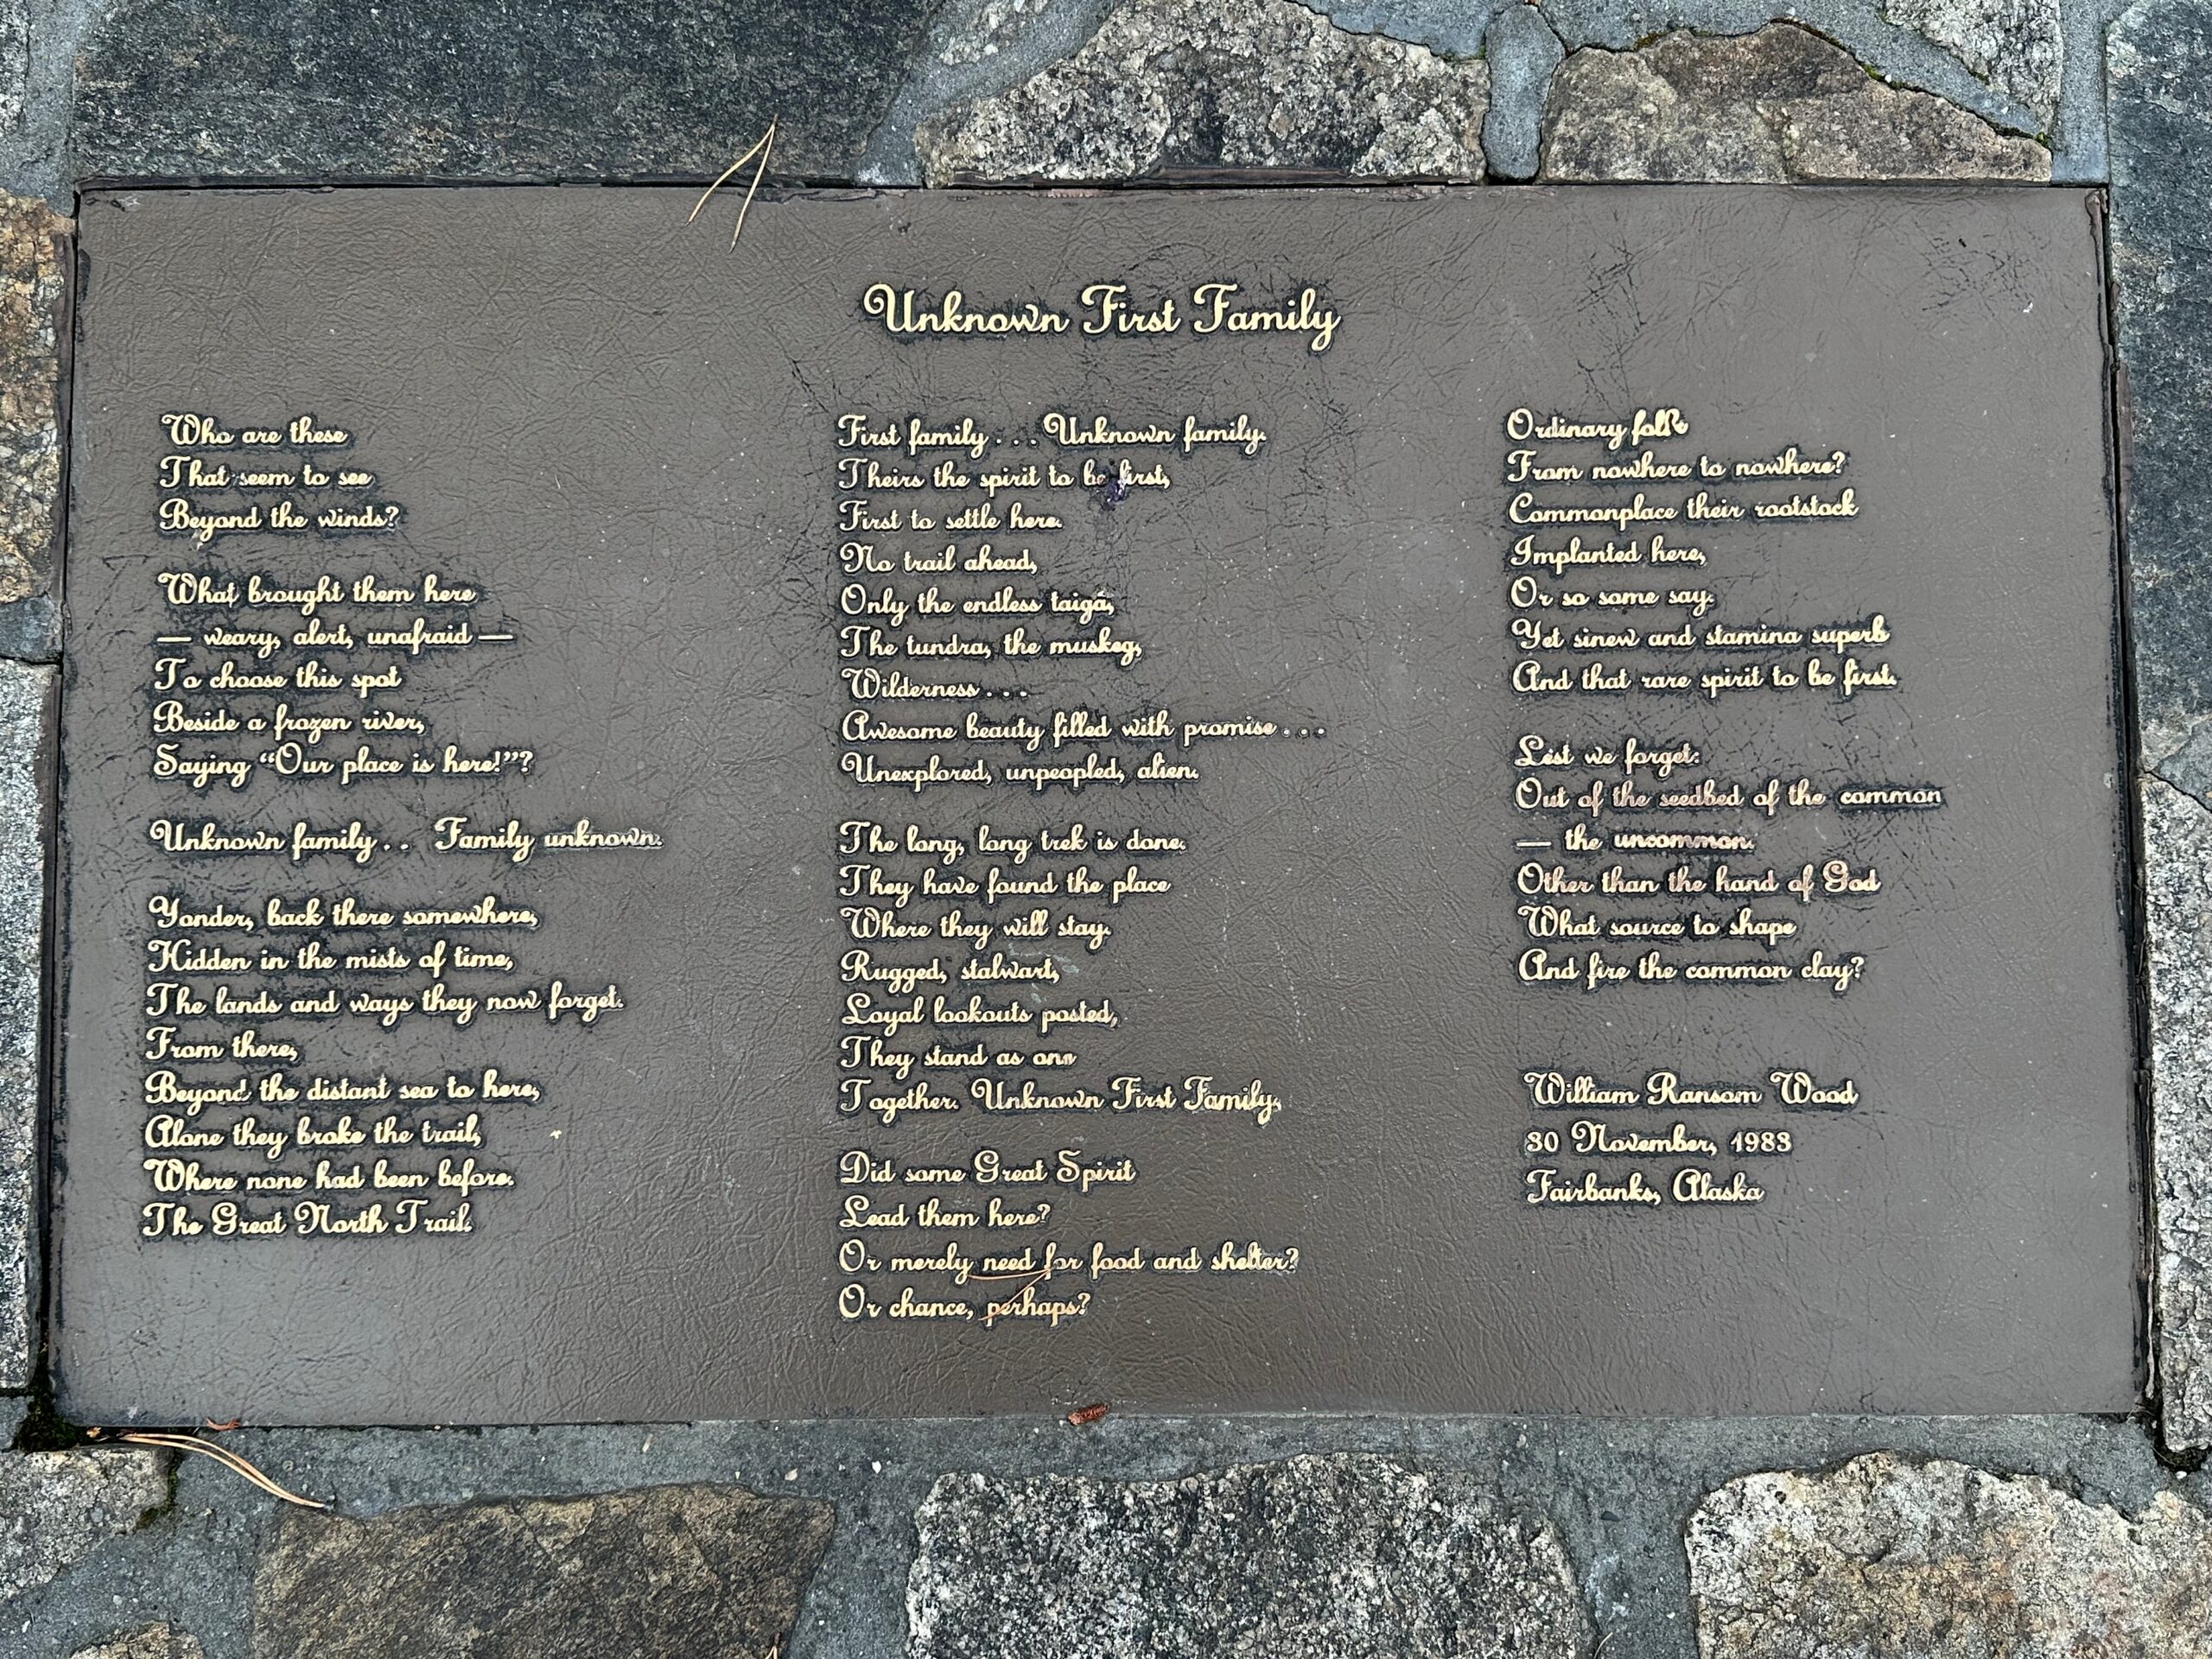 Unknown First Family
Who are these
That seem to see
Beyond the winds?
What brought them here
— weary, alert, unafraid —
To choose this spot
Beside a frozen river,
Saying “Our place is here!”?
Unknown family . . Family unknown.
Yonder, back there somewhere,
Hidden in the mists of time,
The lands and ways they now forget.
From there,
Beyond the distant sea to here,
Alone they broke the trail,
Where none had been before.
The Great North Trail.
First family . . . Unknown family.
Theirs the spirit to be first,
First to settle here.
No trail ahead,
Only the endless taiga,
The tundra, the muskeg,
Wilderness . . .
Awesome beauty filled with promise . . .
Unexplored, unpeopled, alien.
The long, long trek is done.
They have found the place
Where they will stay.
Rugged, stalwart,
Loyal lookouts posted,
They stand as one
Together. Unknown First Family.
Did some Great Spirit
Lead them here?
Or merely need for food and shelter?
Or chance, perhaps?
Ordinary folk
From nowhere to nowhere?
Commonplace their rootstock
Implanted here,
Or so some say.
Yet sinew and stamina superb
And that rare spirit to be first.
Lest we forget:
Out of the seedbed of the common
— the uncommon.
Other than the hand of God
What source to shape
And fire the common clay?
William Ransom Wood
30 November, 1983
Fairbanks, Alaska